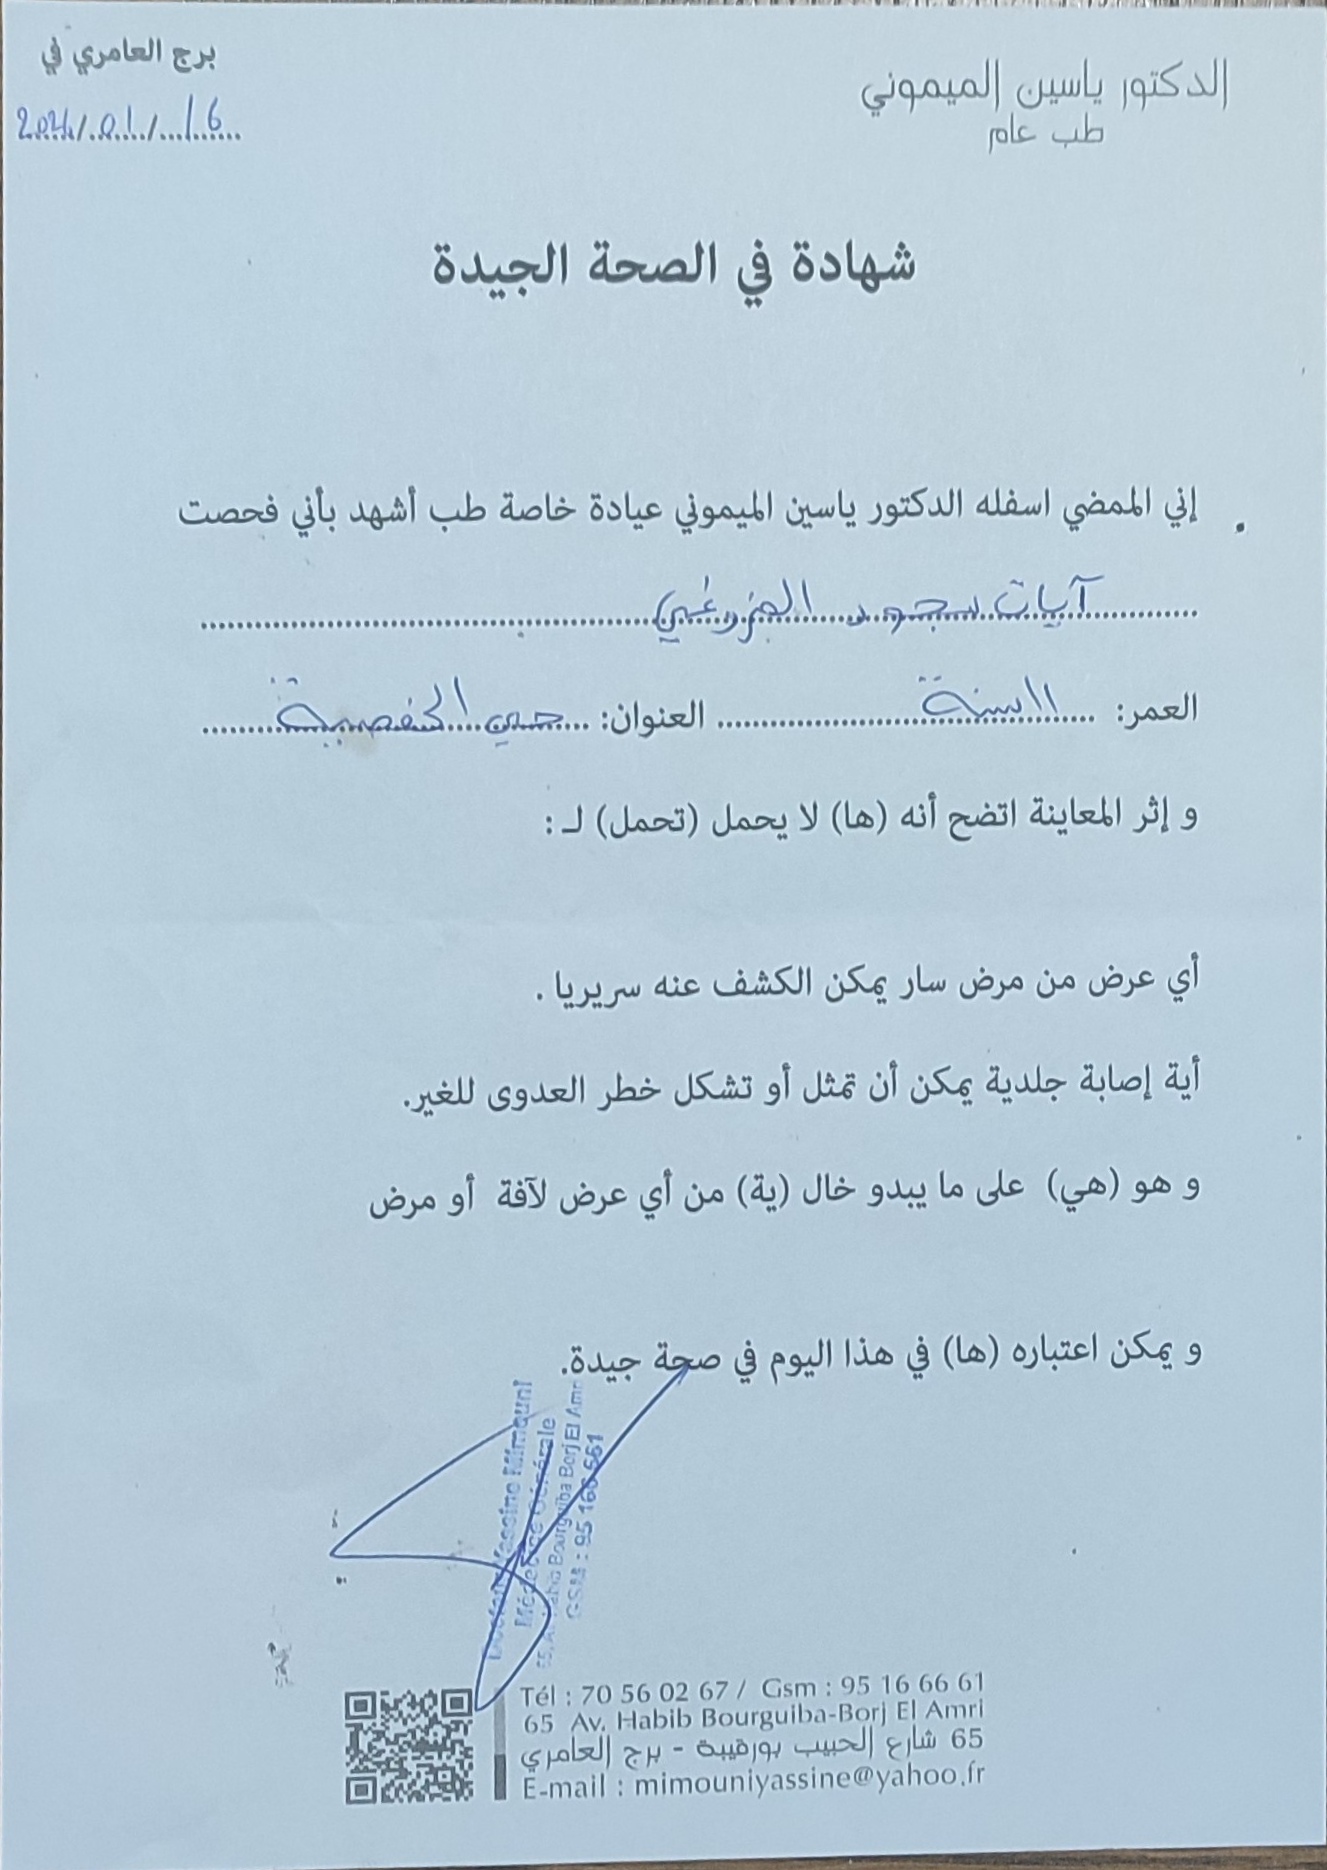 الدكتور ياسين الميموني
طب عام
برج العامري في
16/01/2024
شهادة في الصحة الجيدة
إني الممضي اسفله الدكتور ياسين الميموني عيادة خاصة طب أشهد بأني فحصت
آيات سجود
العمر: 11 سنة العنوان: حي الحفصية
و إثر المعاينة اتضح أنه (ها) لا يحمل (تحمل) لـ :
أي عرض من مرض سار يمكن الكشف عنه سريريا .
أية إصابة جلدية يمكن أن تمثل أو تشكل خطر العدوى للغير.
و هو (هي) على ما يبدو خال (ية) من أي عرض لآفة أو مرض
و يمكن اعتباره (ها) في هذا اليوم في صحة جيدة.
Docteur Yassine Mimouni
Médecine Générale
65, Av Habib Bourguiba Borj El Amri
GSM : 95 166 661
Tél : 70 56 02 67 / Gsm : 95 16 66 61
65 Av. Habib Bourguiba-Borj El Amri
65 شارع الحبيب بورقيبة - برج العامري
E-mail : mimouniyassine@yahoo.fr